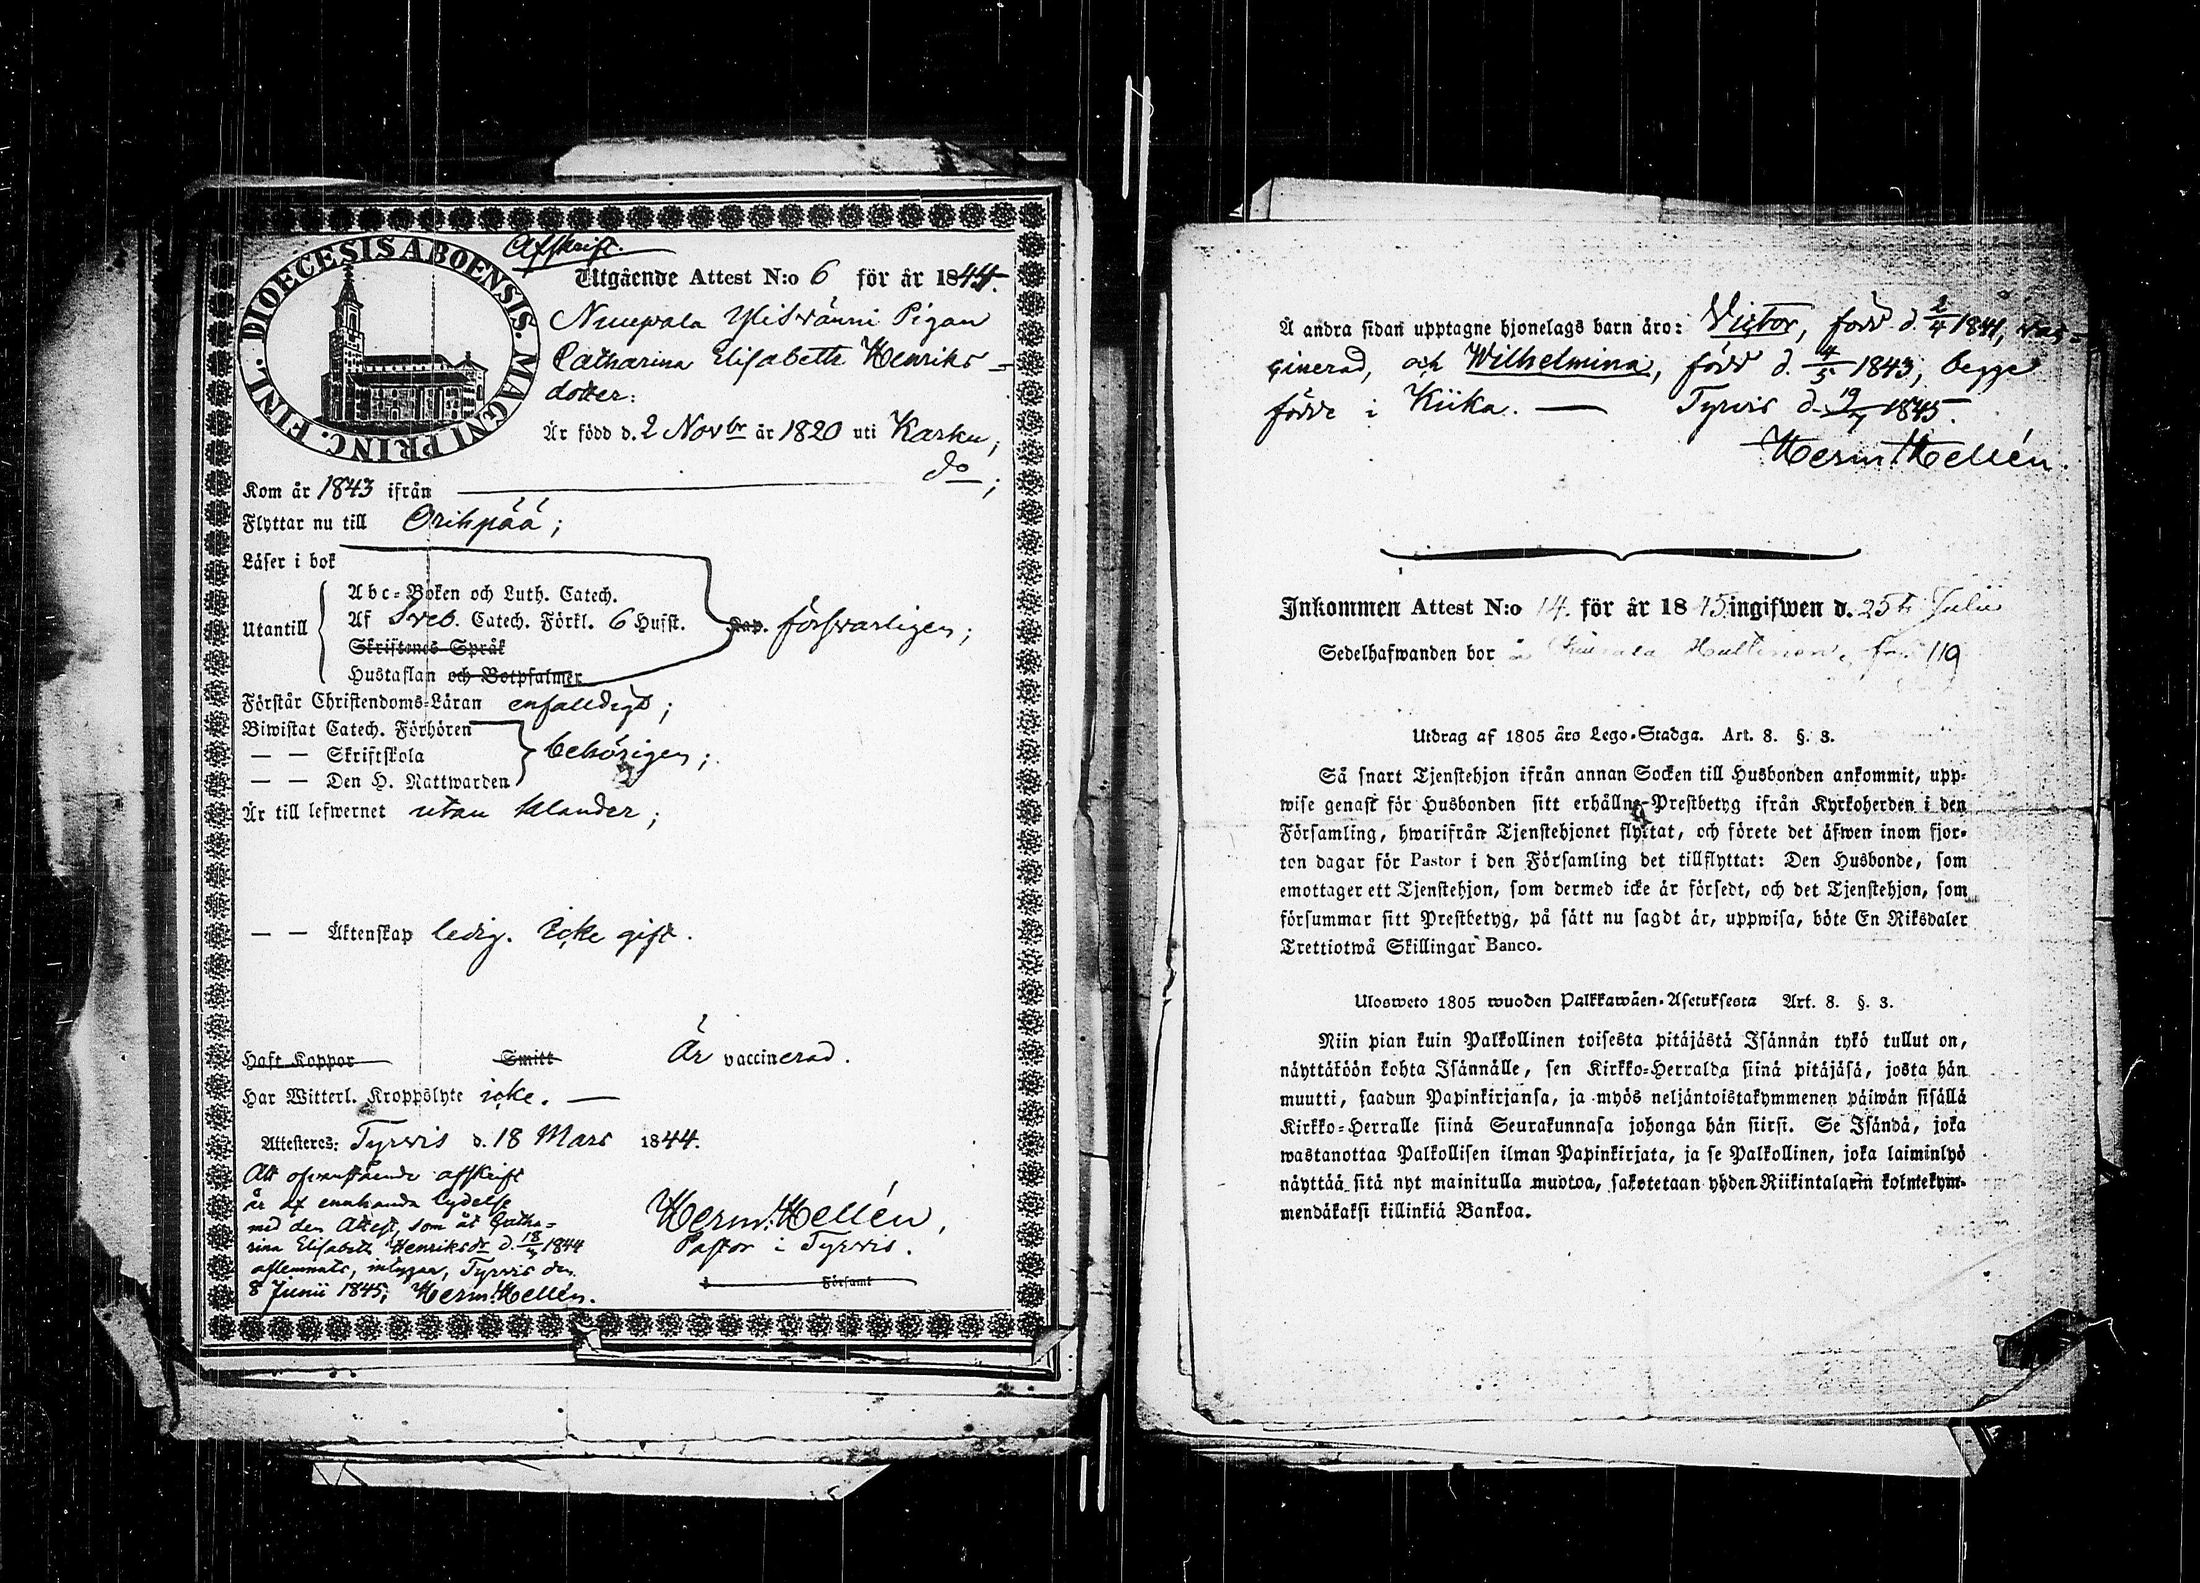 DIOECESIS ABOENSIS. MAGNI PRINC. FINL.
Afskrift.
Utgående Attest N:o 6 för år 1844.
Nuupala Yliswänni Pigan
Catharina Elisabeth Henriks-
dotter:
Är född d. 2 Novbr år 1820 uti Karku,
Kom år 1843 ifrån do;
Flyttar nu till Orihpää;
Läser i bok
Utantill
Abc-Boken och Luth. Catech.
Af Sveb. Catech. Förkl. 6 Hufst. Kap. försvarligen;
Skriftenes Språk
Hustaflan och Botpsalmer
Förstår Christendoms-Läran enfaldigt;
Biwistat Catech. Förhören
— — Skriftskola behörigen;
— — Den H. Nattwarden
Är till lefwernet utan klander;
— — Äktenskap ledig. icke gift.
Haft Koppor Smitt Är vaccinerad.
Har Witterl. Kroppslyte icke. —
Attesteres: Tyrvis d. 18 Mars 1844.
Att ofvanstående afskrift
är af enahanda lydelse
med den Attest, som åt Catha-
rina Elisabeth Henriksdr d. 18/3 1844
aflemnats, intygar, Tyrvis den
8 Junii 1845; Herm. Hellén.
Herm. Hellén,
Pastor i Tyrvis.
Församl
Å andra sidan upptagne hjonelags barn äro: Victor, född d. 2/4 1841, vac-
cinerad, och Wilhelmina, född d. 4/5 1843, begge
födde i Kiika. — Tyrvis d. 19/7 1845.
Herm Hellén.
Inkommen Attest N:o 14. för år 1845 ingifwen d. 25te Julii
Sedelhafwanden bor å 119
Utdrag af 1805 års Lego-Stadga. Art. 8. §. 3.
Så snart Tjenstehjon ifrån annan Socken till Husbonden ankommit, upp-
wise genast för Husbonden sitt erhållne Prestbetyg ifrån Kyrkoherden i den
Församling, hwarifrån Tjenstehjonet flyttat, och förete det äfwen inom fjor-
ton dagar för Pastor i den Församling det tillflyttat: Den Husbonde, som
emottager ett Tjenstehjon, som dermed icke är försedt, och det Tjenstehjon, som
försummar sitt Prestbetyg, på sätt nu sagdt är, uppwisa, böte En Riksdaler
Trettiotwå Skillingar Banco.
Ulosweto 1805 wuoden Palkkawäen-Asetuksesta Art. 8. §. 3.
Niin pian kuin Palkollinen toisesta pitäjästä Isännän tykö tullut on,
näyttäköön kohta Isännälle, sen Kirkko-Herralda siinä pitäjäsä, josta hän
muutti, saadun Papinkirjansa, ja myös neljäntoistakymmenen päiwän sisällä
Kirkko-Herralle siinä Seurakunnasa johonga hän siirsi. Se Isändä, joka
wastanottaa Palkollisen ilman Papinkirjata, ja se Palkollinen, joka laiminlyö
näyttää sitä nyt mainitulla muotoa, sakotetaan yhden Riikintalarin kolmekym-
mendäkaksi killinkiä Bankoa.